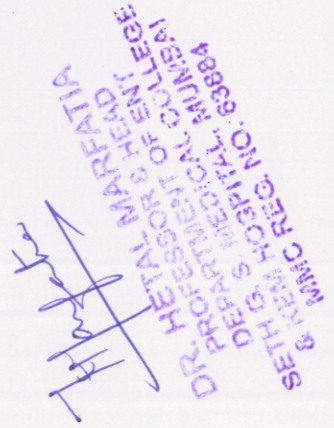 HMarfatia
DR. HETAL MARFATIA
PROFESSOR & HEAD
DEPARTMENT OF ENT
SETH G. S. MEDICAL COLLEGE
& KEM HOSPITAL, MUMBAI
MMC REG. NO. 63884